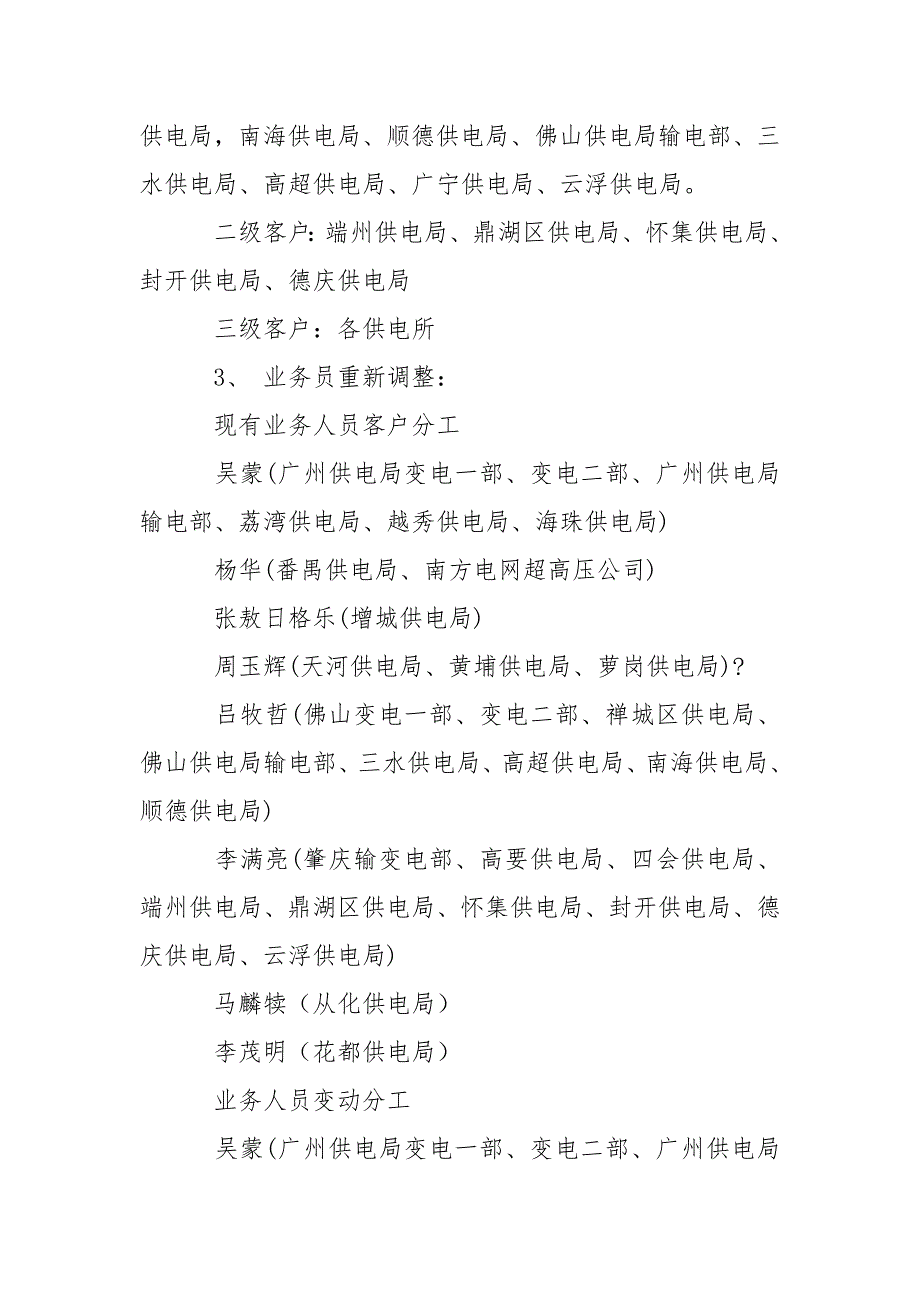 供电局，南海供电局、顺德供电局、佛山供电局输电部、三
水供电局、高超供电局、广宁供电局、云浮供电局。
二级客户：端州供电局、鼎湖区供电局、怀集供电局、
封开供电局、德庆供电局
三级客户：各供电所
3、 业务员重新调整：
现有业务人员客户分工
吴蒙(广州供电局变电一部、变电二部、广州供电局
输电部、荔湾供电局、越秀供电局、海珠供电局)
杨华(番禺供电局、南方电网超高压公司)
张敖日格乐(增城供电局)
周玉辉(天河供电局、黄埔供电局、萝岗供电局)?
吕牧哲(佛山变电一部、变电二部、禅城区供电局、
佛山供电局输电部、三水供电局、高超供电局、南海供电局、
顺德供电局)
李满亮(肇庆输变电部、高要供电局、四会供电局、
端州供电局、鼎湖区供电局、怀集供电局、封开供电局、德
庆供电局、云浮供电局)
马麟犊（从化供电局）
李茂明（花都供电局）
业务人员变动分工
吴蒙(广州供电局变电一部、变电二部、广州供电局